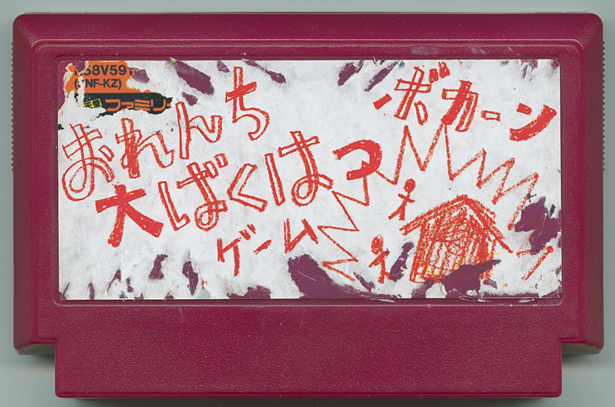 58V59
NF-KZ)
ファミリ
おれんち
大ばくはつ
ゲーム
ボカーン